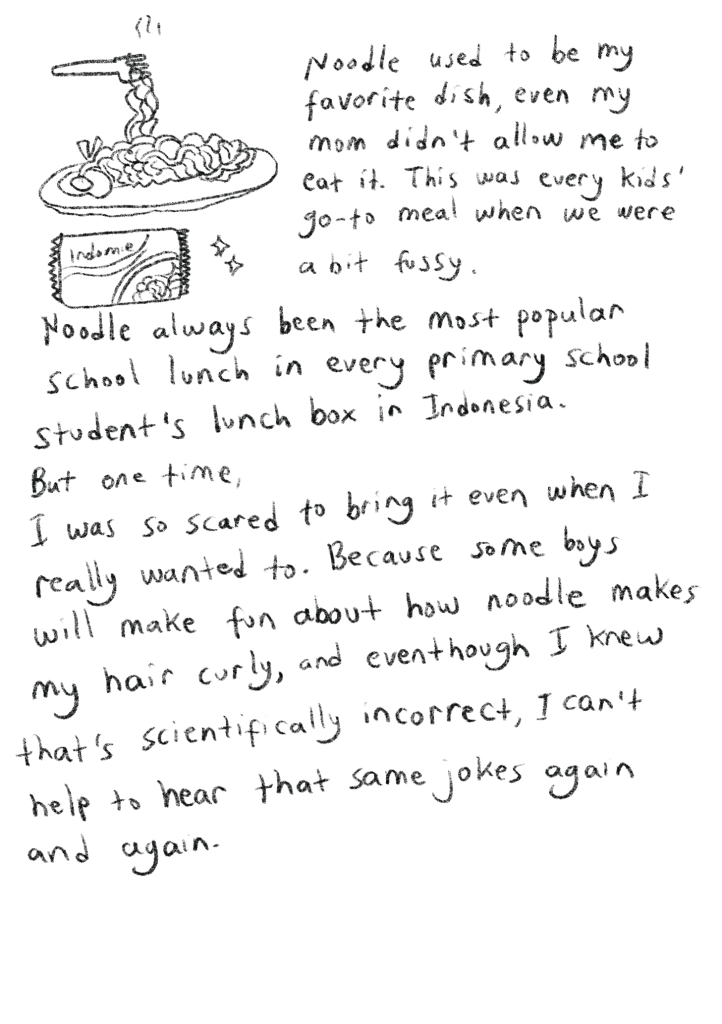 Noodle used to be my
favorite dish, even my
mom didn't allow me to
eat it. This was every kids'
go-to meal when we were
a bit fussy.
Indomie
Noodle always been the most popular
school lunch in every primary school
student's lunch box in Indonesia.
But one time,
I was so scared to bring it even when I
really wanted to. Because some boys
will make fun about how noodle makes
my hair curly, and eventhough I knew
that's scientifically incorrect, I can't
help to hear that same jokes again
and again.